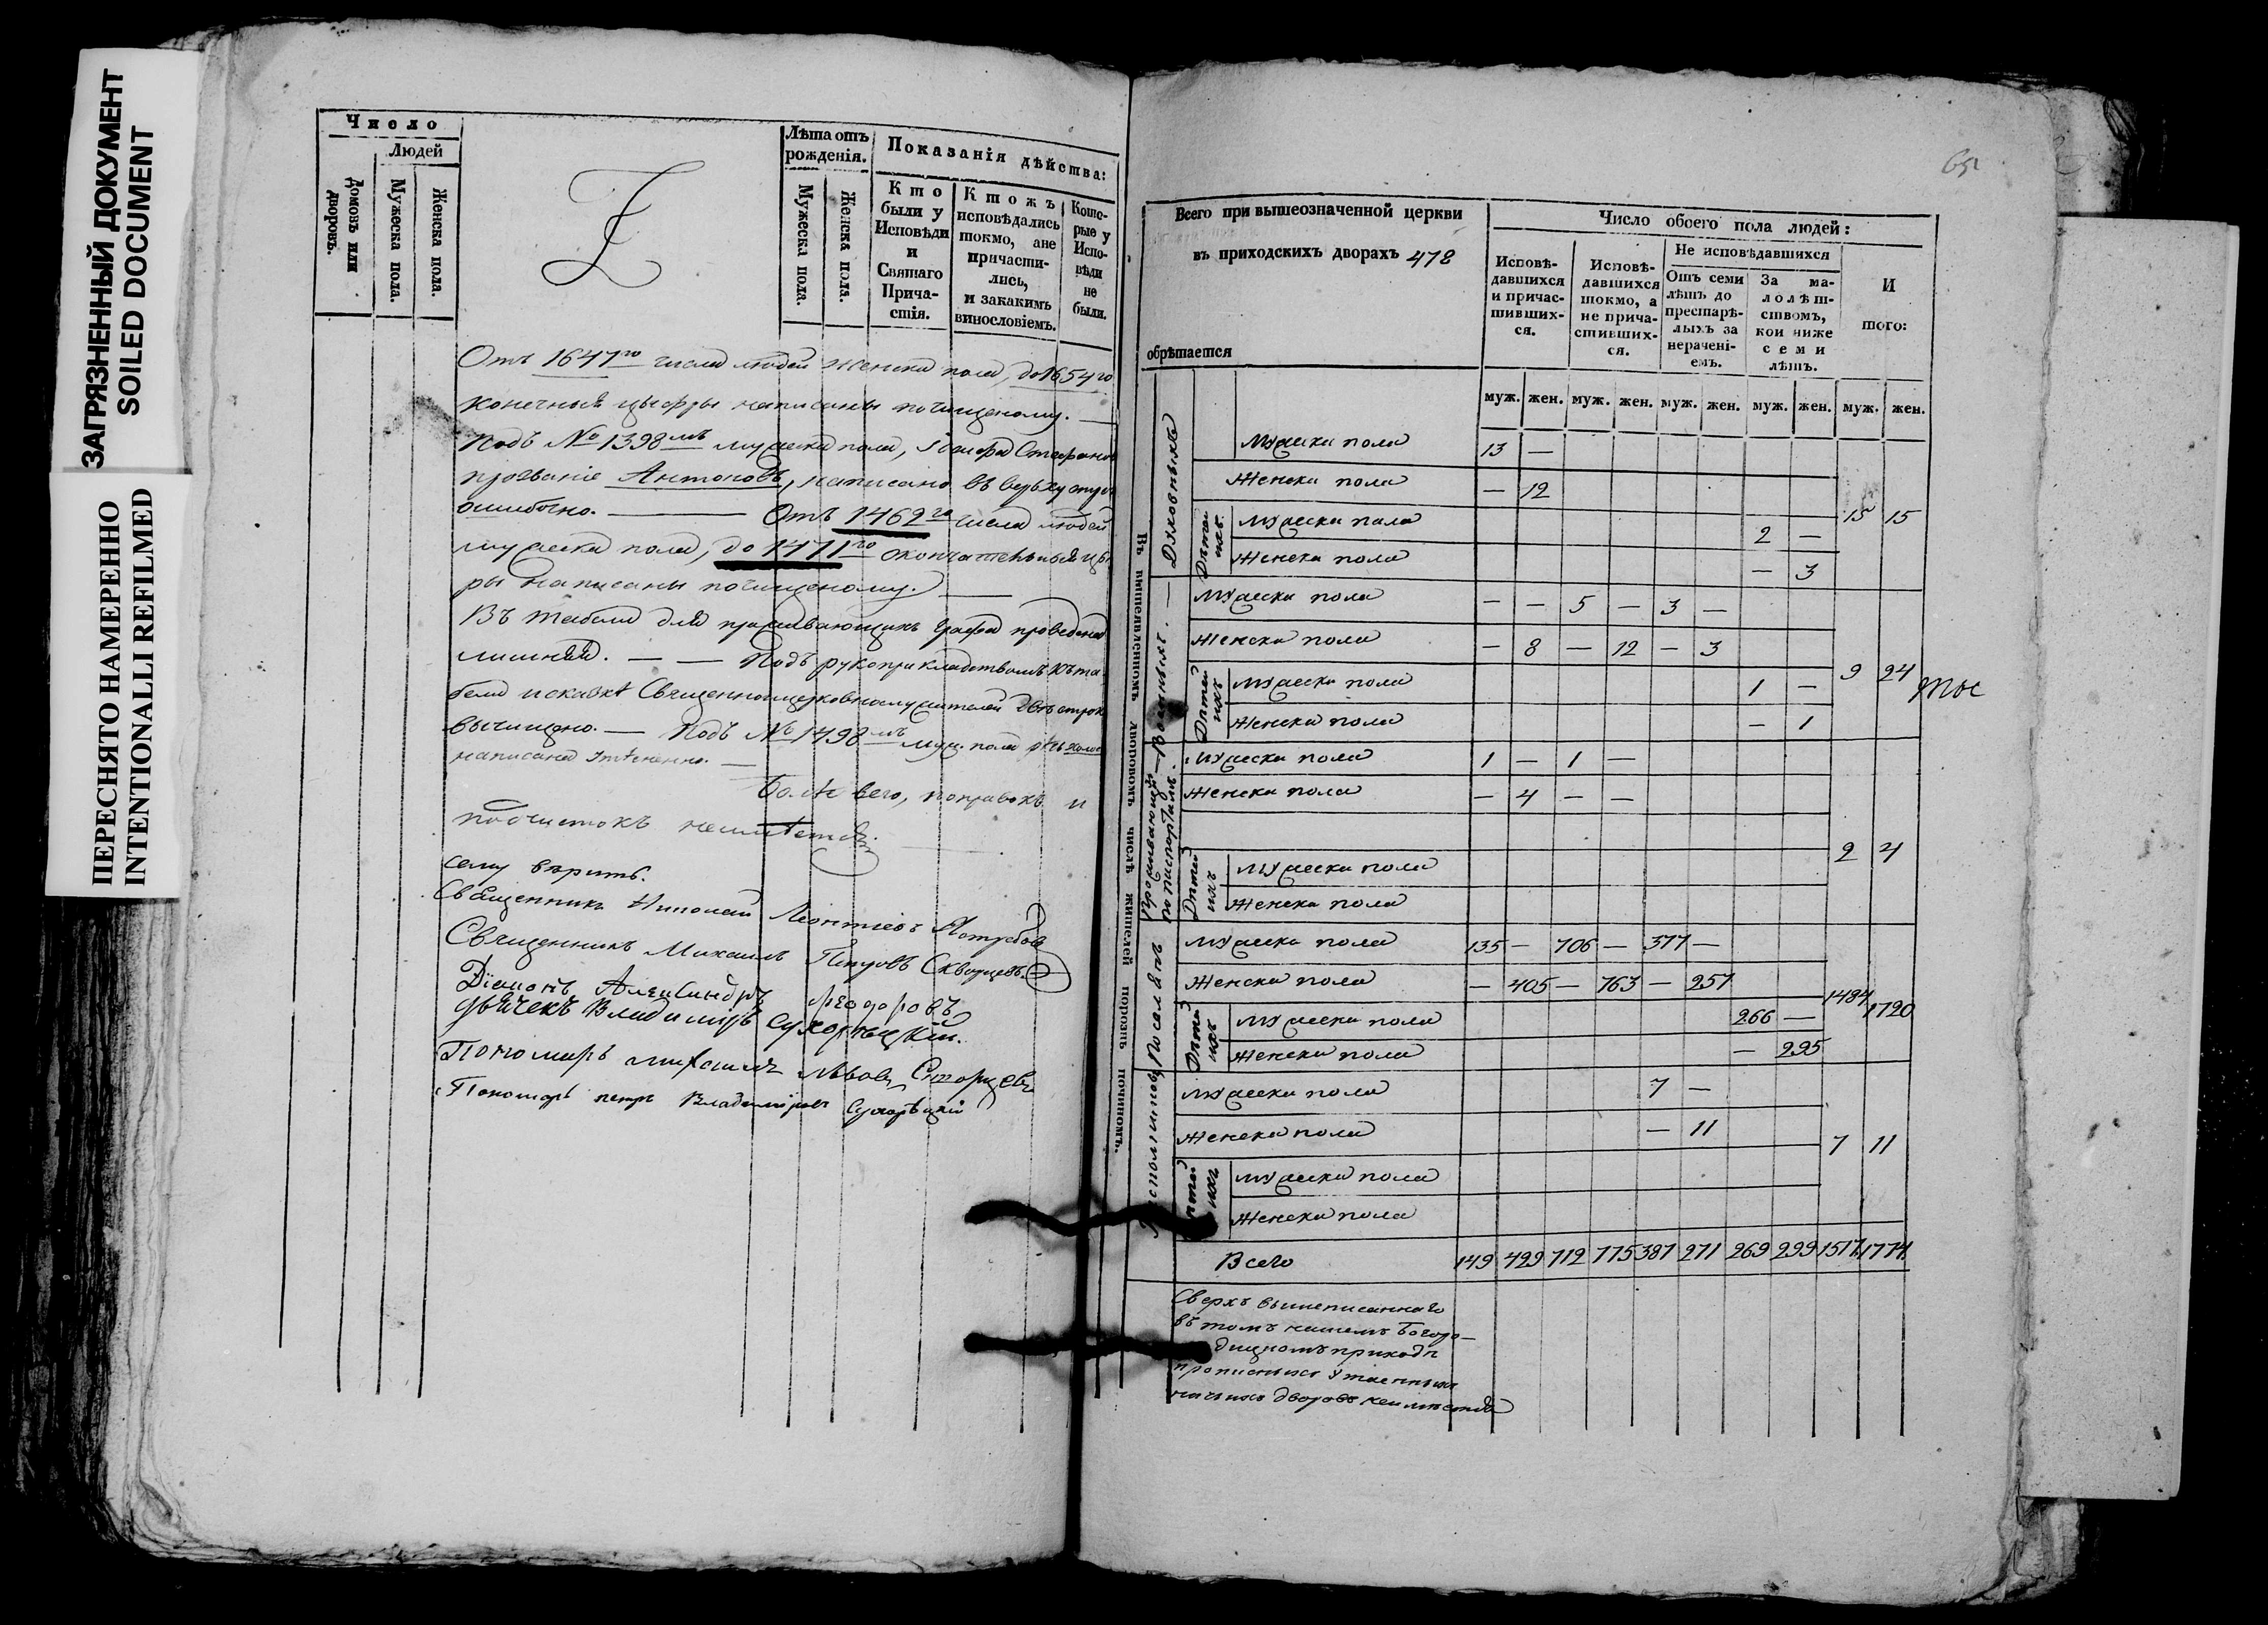 ЗАГРЯЗНЕННЫЙ ДОКУМЕНТ
SOILED DOCUMENT
ПЕРЕСНЯТО НАМЕРЕННО
INTENTIONALLI REFILMED
Число
Людей
Домовъ или дворовъ.
Мужеска пола.
Женска пола.
Лѣта отъ рожденія.
Мужеска пола.
Женска пола.
Показанія дѣйства:
Кто были у Исповѣди и Святаго Причастія.
Ктожъ исповѣдались токмо, ане причастились, и закакимъ винословіемъ.
Которые у Исповѣди не были.
Отъ 1647го числа людей женска пола, до 1654го
конечныя цыфры написаны почищеному.
Подъ № 1398мъ мужеска пола, Іосифа Стефанов
прозваніе Антоновъ, написано въ верьху стро
ошибочно. — Отъ 1462го числа людей
мужеска пола, до 1471го окончательныя цы
ры написаны почищеному. —
Въ табели для проживающихъ графа проведена
лишняя. — — Подъ рукоприкладствомъ къ та
бели и сказкѣ Священноцерковнослужителей двѣ строк
вычищено. — Подъ № 1498мъ муж. пола
написана —
Болѣ сего, поправокъ и
подчистокъ неимѣется.
сему вѣрить.
Священникъ Николай Леонтіевъ Ястребов
Священникъ Михаилъ Петровъ Скворцовъ.
Діаконъ Александръ Ѳеодоровъ
дьячекъ Владимиръ Сухорѣцкій.
Пономарь Михаилъ Львовъ Старцевъ
Пономарь петръ Владимировъ Сухорѣцкій
651
Всего при вышеозначенной церкви
въ приходскихъ дворахъ 478
обрѣтается
Число обоего пола людей:
Исповѣдавшихся и причастившихся.
Исповѣдавшихся токмо, а не причастившихся.
Не исповѣдавшихся
Отъ семи лѣтъ до престарѣлыхъ за нерачені-емъ.
За малолѣтствомъ, кои ниже семи лѣтъ.
И того:
муж. жен. муж. жен. муж. жен. муж. жен. муж. жен.
Въ вышеявленномъ дворовомъ числѣ жителей порознь починомъ.
Духовныхъ
Мужеска пола 13 —
Женска пола — 12
15 15
Дѣтей ихъ
Мужеска пола 2 —
Женска пола — 3
Военныхъ.
Мужеска пола — — 5 — 3 —
Женска пола — 8 — 12 — 3
9 24
Дѣтей ихъ
Мужеска пола 1 —
Женска пола — 1
Проживающихъ по паспортамъ.
Мужеска пола 1 — 1 —
Женска пола — 4 — —
2 4
Дѣтей ихъ
Мужеска пола
Женска пола
Поселянъ
Мужеска пола 135 — 706 — 377 —
Женска пола — 405 — 763 — 257
1484 1720
Дѣтей ихъ
Мужеска пола 266 —
Женска пола — 295
Мужеска пола 7 —
Женска пола — 11
7 11
Дѣтей ихъ
Мужеска пола
Женска пола
Всего 149 429 712 775 387 271 269 299 1517 1774
Сверхъ вышеписаннаго
въ томъ нашемъ Богоро-
дицкомъ приходѣ
прописныхъ утаенныхъ
ничьихъ дворовъ неимѣется